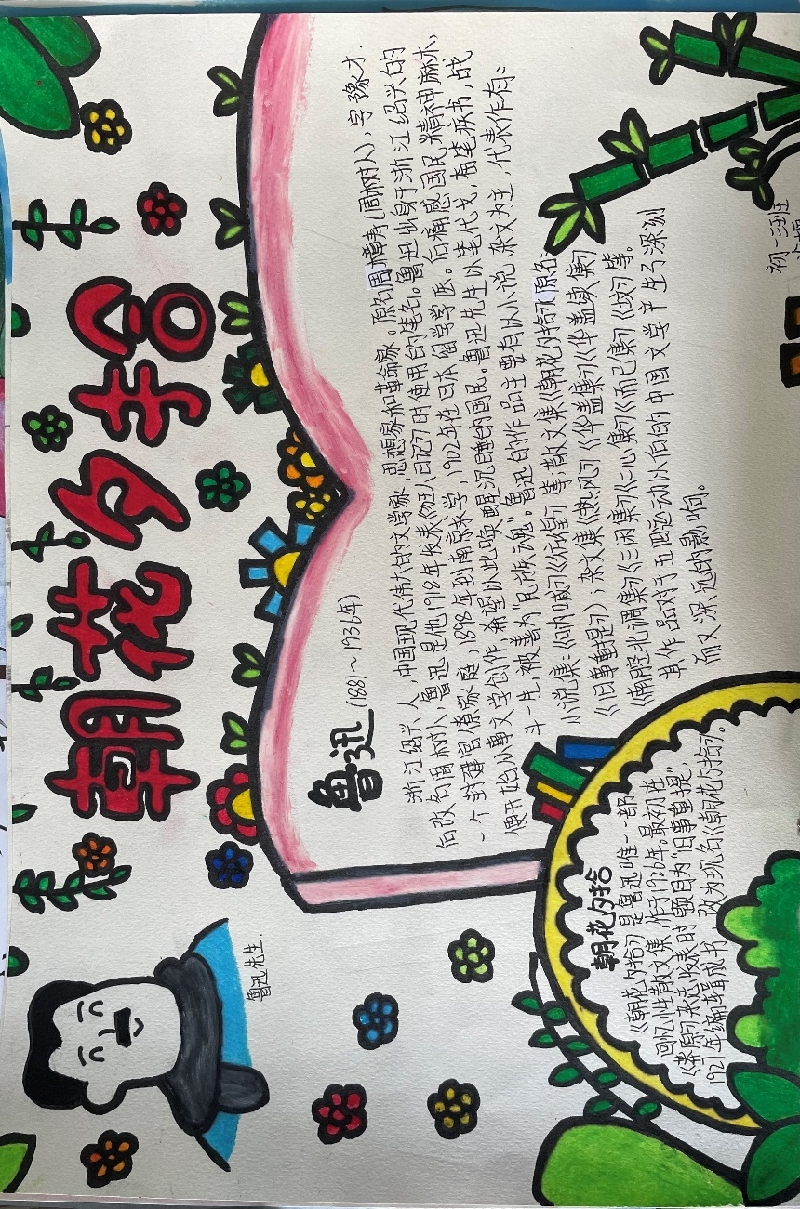 朝花夕拾
鲁迅先生.
鲁迅(1881.～1936年)
浙江绍兴人,中国现代伟大的文学家、思想家和革命家。原名周樟寿(周树人),字豫才.
后改名周树人,鲁迅是他1918年发表《狂人日记》时使用的笔名。鲁迅出身于浙江绍兴的
一个封建官僚家庭,1898年到南京求学,1902年在日本留学学医。后痛感国民精神麻木,
便开始从事文学创作,希望以此唤醒沉睡的国民。鲁迅先生以笔代戈,
斗一生,被誉为"民族魂"。鲁迅的作品主要有以小说、杂文为主,代表作有:
小说集:《呐喊》《彷徨》等,散文集《朝花夕拾》(原名
《旧事重提》);杂文集《热风》《华盖集》《华盖续集》
《南腔北调集》《三闲集》《二心集》《而已集》《坟》等。
其作品对于五四运动以后的中国文学产生了深刻
而又深远的影响。
朝花夕拾
《朝花夕拾》是鲁迅唯一一部
回忆性散文集,作于1926年,最初在
《莽原》杂志发表时题目为"旧事重提",
1927年编辑成书,改为现名《朝花夕拾》.
初一三班